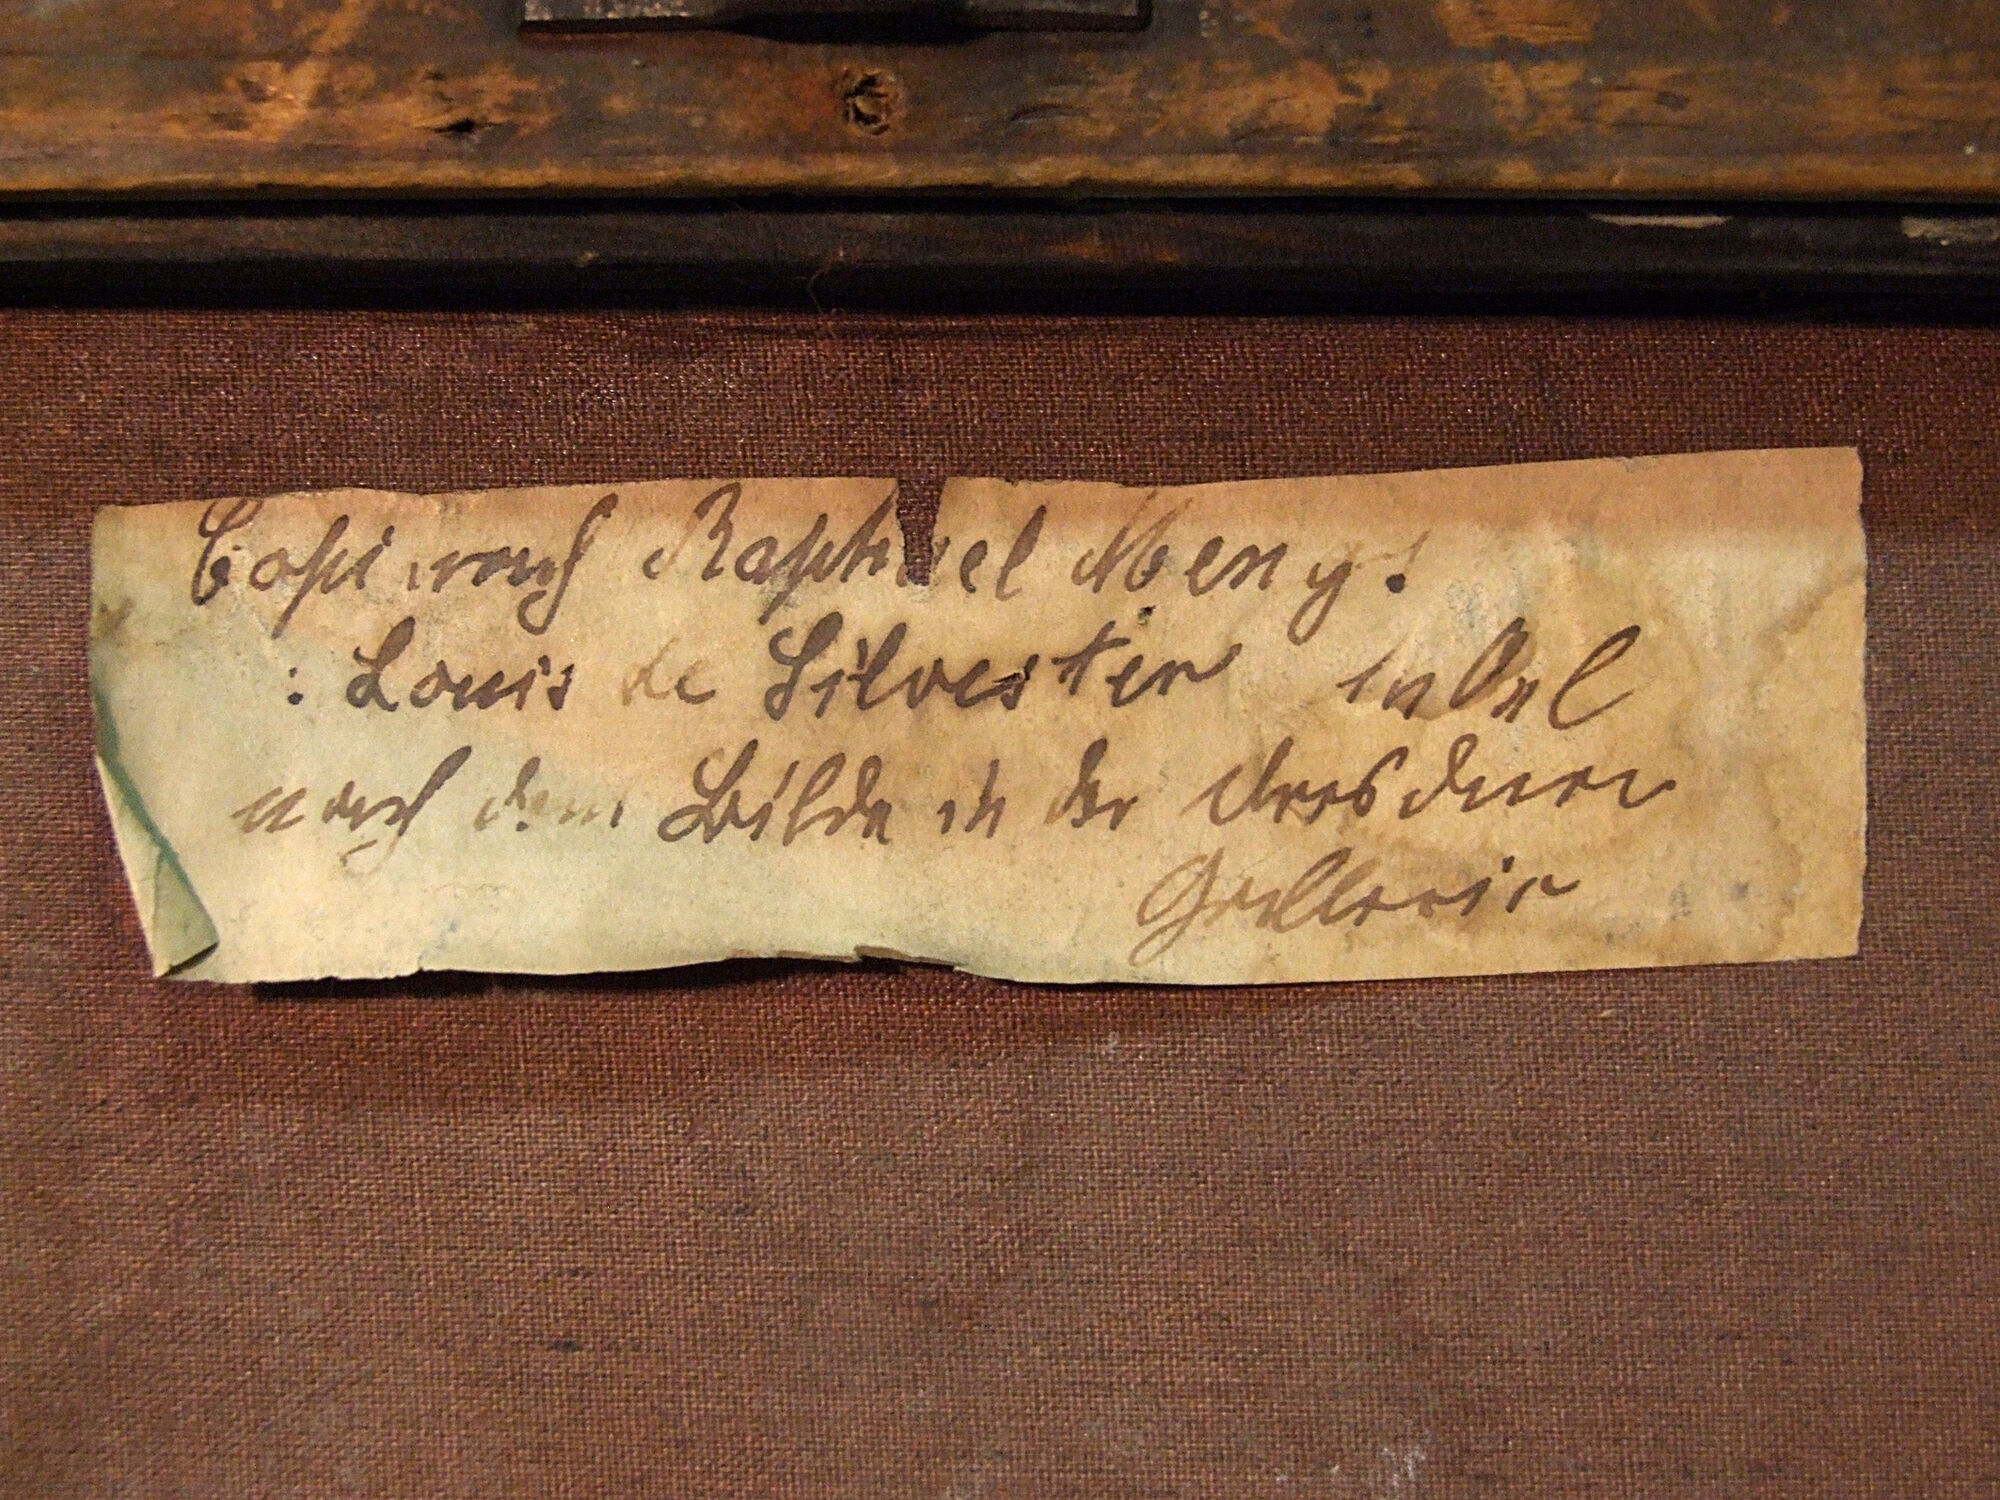 Copi nach Raphael Mengs.
: Louis de Silvester in Oel
nach dem Bilde in der Dresdner
Gallerie